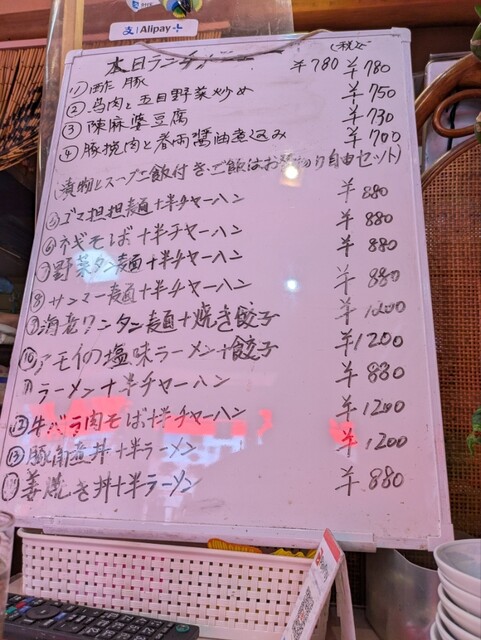 Alipay+
本日ランチメニュー (税込)
① 酢豚 ¥780 ¥780
② 鳥肉と五目野菜炒め ¥750
③ 陳麻婆豆腐 ¥730
④ 豚挽肉と春雨醤油煮込み ¥700
(漬物とスープご飯付き・ご飯はお替わり自由セット)
⑤ ゴマ担担麺+半チャーハン ¥880
⑥ ネギそば+半チャーハン ¥880
⑦ 野菜タン麺+半チャーハン ¥880
⑧ サンマー麺+半チャーハン ¥880
⑨ 海老ワンタン麺+焼き餃子 ¥1200
⑩ アモイの塩味ラーメン+餃子 ¥1200
⑪ ラーメン+半チャーハン ¥880
⑫ 牛バラ肉そば+半チャーハン ¥1200
⑬ 豚角煮丼+半ラーメン ¥1200
姜焼き丼+半ラーメン ¥880